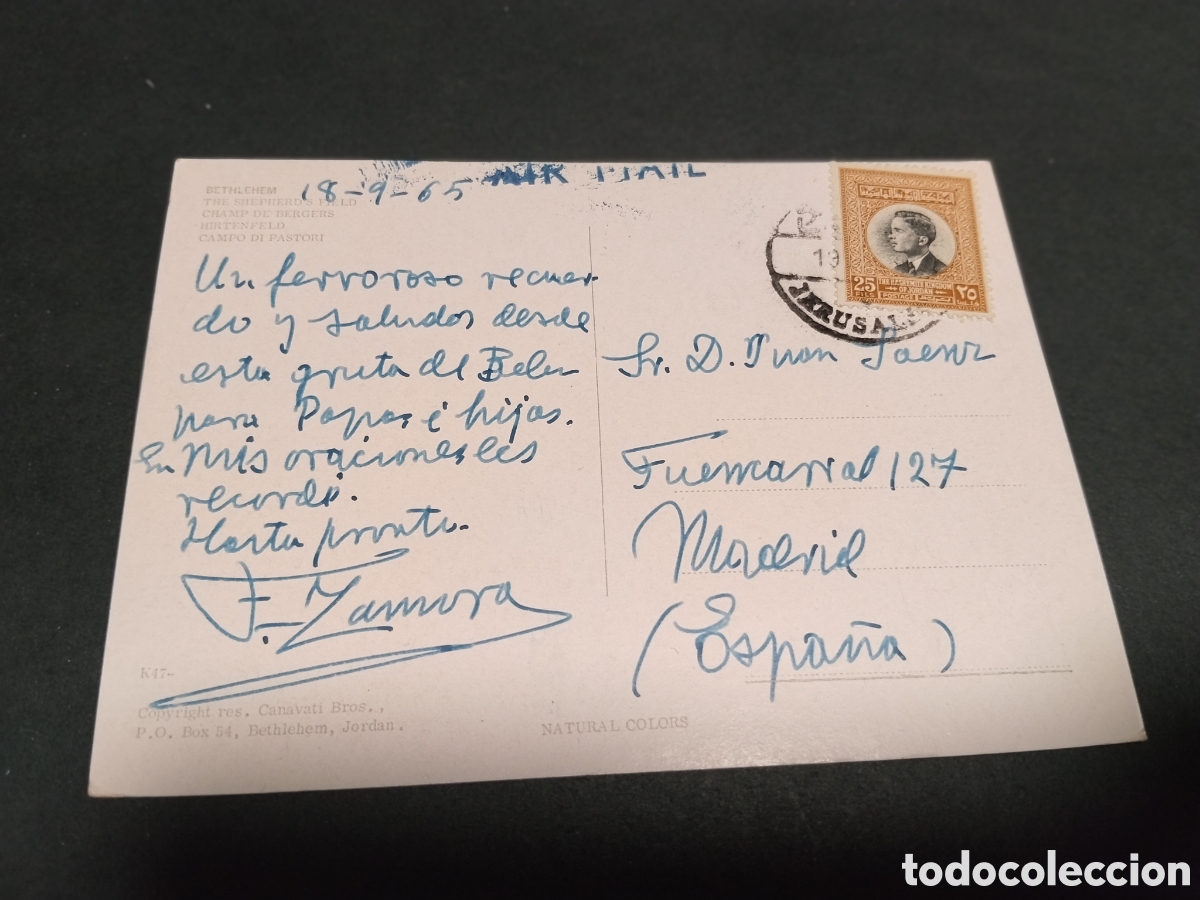 AIR MAIL
BETHLEHEM
THE SHEPHERD'S FIELD
CHAMP DE BERGERS
HIRTENFELD
CAMPO DI PASTORI
18-9-65
Un ferroroso recuer-
do y saludos desde
esta gruta de Belen
para Papas é hijas.
En mis oraciones les
recordé.
Hasta pronto.
F. Zamora
K47-
Copyright res. Canavati Bros.,
P.O. Box 54, Bethlehem, Jordan.
NATURAL COLORS
19
JERUSAL
25 FILS
THE HASHEMITE KINGDOM
OF JORDAN
POSTAGE
٢٥
Sr. D. Juan Saenz
Fuencarral 127
Madrid
(España)
todocoleccion